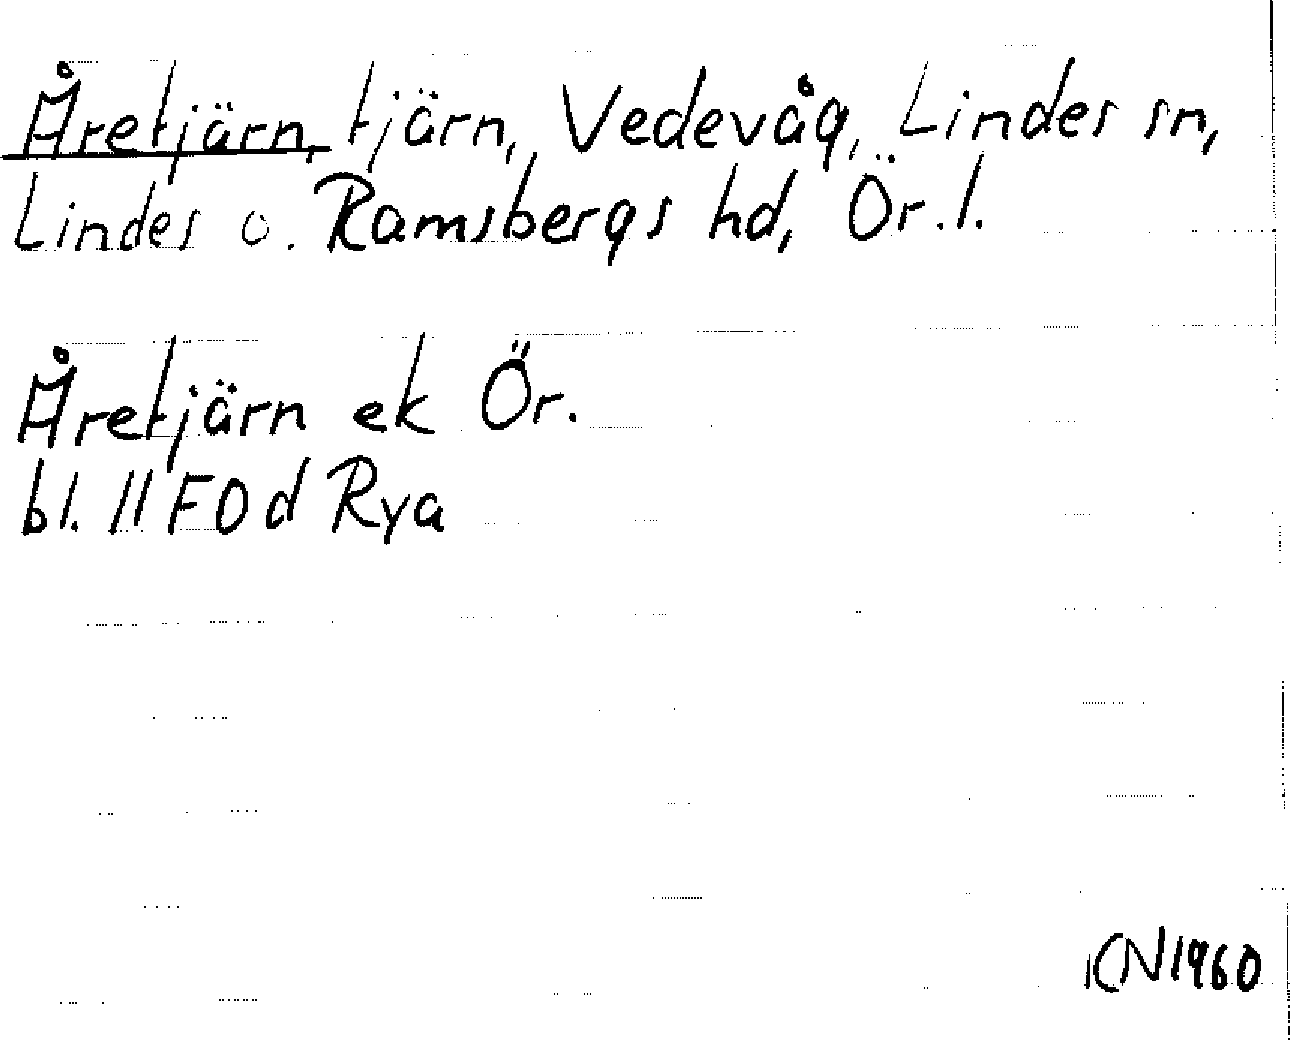 Åretjärn, tjärn, Vedevåg, Lindes sn,
Lindes o. Ramsbergs hd, Ör. l.
Åretjärn ek Ör.
bl. 11 F0d Rya
KN 1960